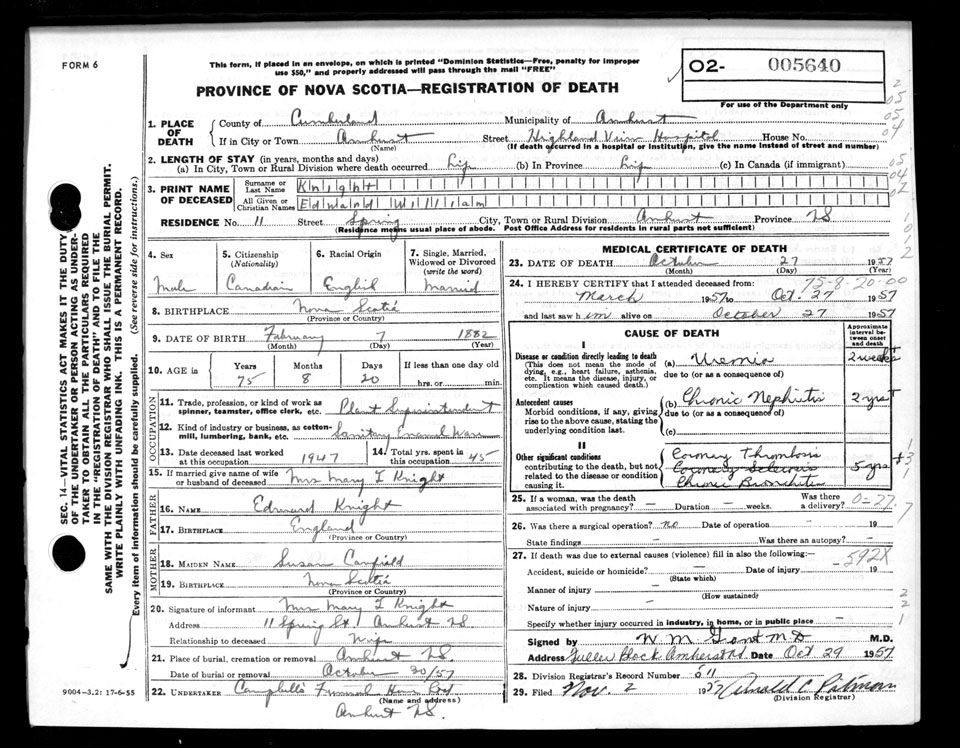 FORM 6
This form, if placed in an envelope, on which is printed "Dominion Statistics—Free, penalty for improper
use $50," and properly addressed will pass through the mail "FREE"
O2- 005640
For use of the Department only
PROVINCE OF NOVA SCOTIA—REGISTRATION OF DEATH
1. PLACE OF DEATH
County of Cumberland Municipality of Amherst
If in City or Town Amherst Street Highland View Hospital House No.
(Name) (If death occurred in a hospital or institution, give the name instead of street and number)
2. LENGTH OF STAY (in years, months and days)
(a) In City, Town or Rural Division where death occurred Life (b) In Province Life (c) In Canada (if immigrant)
3. PRINT NAME OF DECEASED
Surname or Last Name Knight
All Given or Christian Names Edmand William
RESIDENCE No. 11 Street Spring City, Town or Rural Division Amherst Province NS
(Residence means usual place of abode. Post Office Address for residents in rural parts not sufficient)
4. Sex
Male
5. Citizenship
(Nationality)
Canadian
6. Racial Origin
English
7. Single, Married,
Widowed or Divorced
(write the word)
Married
8. BIRTHPLACE Nova Scotia
(Province or Country)
9. DATE OF BIRTH February 7 1882
(Month) (Day) (Year)
10. AGE in
Years 75
Months 8
Days 20
If less than one day old
hrs. or min.
OCCUPATION
11. Trade, profession, or kind of work as
spinner, teamster, office clerk, etc. Plant Superintendent
12. Kind of industry or business, as cotton-
mill, lumbering, bank, etc. Sanitary Enamel Ware
13. Date deceased last worked
at this occupation 1947
14. Total yrs. spent in
this occupation 45
15. If married give name of wife
or husband of deceased Mrs Mary I Knight
FATHER
16. NAME Edmund Knight
17. BIRTHPLACE England
(Province or Country)
MOTHER
18. MAIDEN NAME Susan Canfield
19. BIRTHPLACE Nova Scotia
(Province or Country)
20. Signature of informant Mrs Mary I Knight
Address 11 Spring St. Amherst NS
Relationship to deceased Wife
21. Place of burial, cremation or removal Amherst N.S.
Date of burial or removal October 30/57
22. UNDERTAKER Campbells Funeral Home
(Name and address)
Amherst NS
MEDICAL CERTIFICATE OF DEATH
23. DATE OF DEATH October 27 1957
(Month) (Day) (Year)
75-8-20-00
24. I HEREBY CERTIFY that I attended deceased from:
March 1957 to Oct. 27 1957
and last saw him alive on October 27 1957
CAUSE OF DEATH
Approximate
interval be-
tween onset
and death
I
Disease or condition directly leading to death
(This does not mean the mode of
dying, e.g., heart failure, asthenia,
etc. It means the disease, injury, or
complication which caused death.)
(a) Uremia 2 weeks
due to (or as a consequence of)
Antecedent causes
Morbid conditions, if any, giving
rise to the above cause, stating the
underlying condition last.
(b) Chronic Nephritis 2 yrs +
due to (or as a consequence of)
(c)
II
Other significant conditions
contributing to the death, but not
related to the disease or condition
causing it.
Coronary Thrombosis
Coronary Sclerosis 5 yrs +
Chronic Bronchitis
25. If a woman, was the death
associated with pregnancy? – Duration weeks.
Was there
a delivery?
26. Was there a surgical operation? no Date of operation – 19
State findings – Was there an autopsy? –
27. If death was due to external causes (violence) fill in also the following:–
592X
Accident, suicide or homicide? – Date of injury – 19
(State which)
Manner of injury –
(How sustained)
Nature of injury –
Specify whether injury occurred in industry, in home, or in public place –
Signed by W. M. Gant MD M.D.
Address Fuller Block Amherst NS Date Oct 29 1957
28. Division Registrar's Record Number
29. Filed Nov. 2 1957
(Division Registrar)
9004-3.2: 17-6-55
SEC. 14—VITAL STATISTICS ACT MAKES IT THE DUTY
OF THE UNDERTAKER OR PERSON ACTING AS UNDER-
TAKER TO OBTAIN ALL THE PARTICULARS REQUIRED
IN THE "REGISTRATION OF DEATH" AND TO FILE THE
SAME WITH THE DIVISION REGISTRAR WHO SHALL ISSUE THE BURIAL PERMIT.
WRITE PLAINLY WITH UNFADING INK. THIS IS A PERMANENT RECORD.
Every item of information should be carefully supplied. (See reverse side for instructions.)